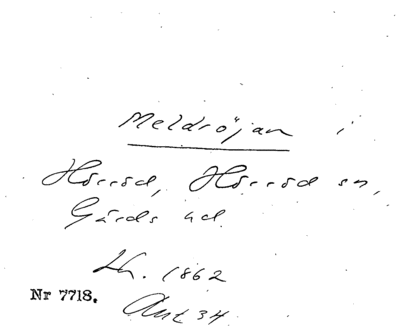 Meldröjan i
Hörröd, Hörröd sn,
Gärds hd.
Lh. 1862
Nr 7718. Ant 34